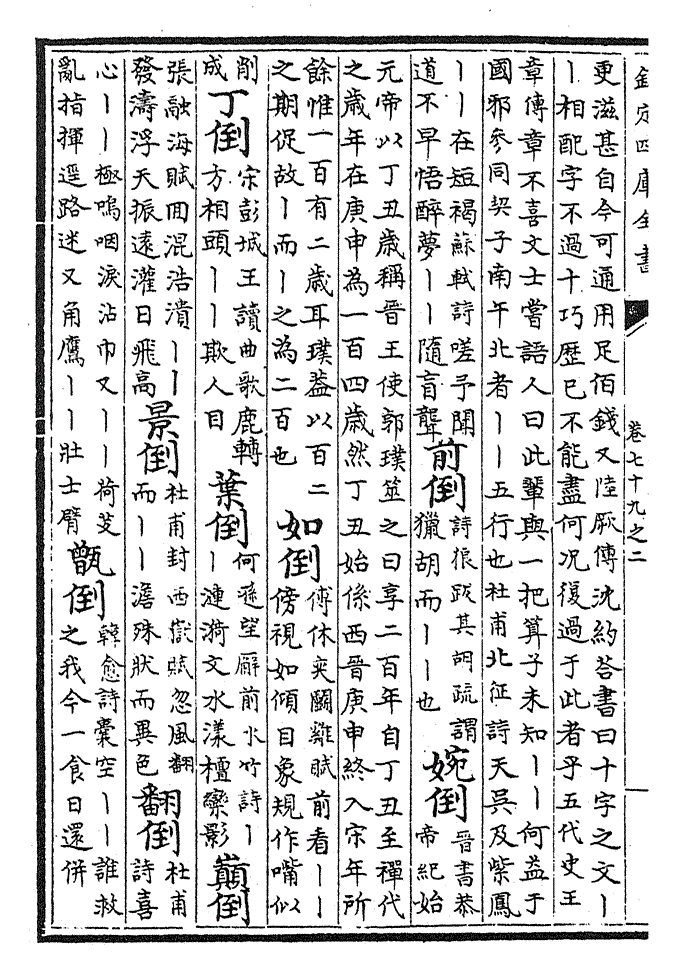 欽定四庫全書
卷七十九之二
更滋甚自今可通用足佰錢又陸厥傳沈約答書曰十字之文〡
〡相配字不過十巧歷已不能盡何况復過于此者乎五代史王
章傳章不喜文士嘗語人曰此輩與一把算子未知〡〡何益于
國邪參同契子南午北者〡〡五行也杜甫北征詩天吳及紫鳳
〡〡在短褐蘇軾詩嗟予聞
道不早悟醉夢〡〡隨盲聾
前倒
詩狼跋其胡疏謂
獵胡而〡〡也
婉倒
晉書恭
帝紀始
元帝以丁丑歲稱晉王使郭璞筮之曰享二百年自丁丑至禪代
之歲年在庚申為一百四歲然丁丑始係西晉庚申終入宋年所
餘惟一百有二歲耳璞葢以百二
之期促故〡而〡之為二百也
如倒
傅休奕鬭雞賦前看〡〡
傍視如傾目象規作嘴似
削
成
丁倒
宋彭城王讀曲歌鹿轉
方相頭〡〡欺人目
葉倒
何遜望廨前水竹詩〡
〡漣漪文水漾檀欒影
巔倒
張融海賦回混浩潰〡〡
發濤浮天振遠灌日飛高
景倒
杜甫封西嶽賦忽風翻
而〡〡澹殊狀而異色
翻倒
杜甫
詩喜
心〡〡極嗚咽淚沾巾又〡〡荷芰
亂指揮逕路迷又角鷹〡〡壯士臂
甑倒
韓愈詩囊空〡〡誰救
之我今一食日還併